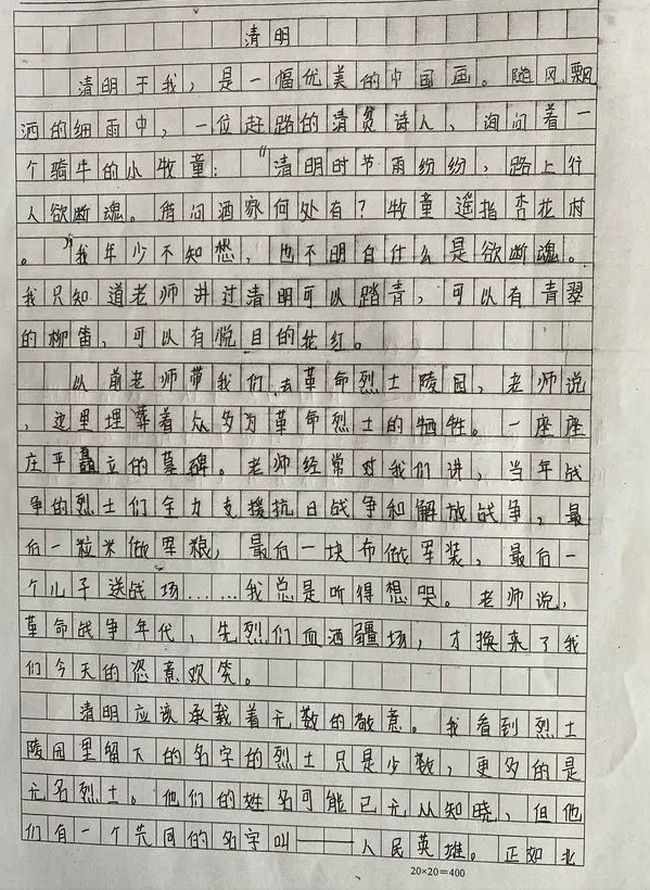 清明
清明于我，是一幅优美的中国画。随风飘
洒的细雨中，一位赶路的清贫诗人、询问着一
个骑牛的小牧童：“清明时节雨纷纷，路上行
人欲断魂。借问酒家何处有？牧童遥指杏花村
。”我年少不知愁，也不明白什么是欲断魂。
我只知道老师讲过清明可以踏青，可以有青翠
的柳笛，可以有悦目的花红。
以前老师带我们去革命烈士陵园，老师说
，这里埋葬着众多为革命烈士的牺牲。一座座
庄平矗立的墓碑。老师经常对我们讲，当年战
争的烈士们全力支援抗日战争和解放战争，最
后一粒米做军粮，最后一块布做军装，最后一
个儿子送战场……我总是听得想哭。老师说，
革命战争年代，先烈们血洒疆场，才换来了我
们今天的恣意欢笑。
清明应该承载着无数的敬意。我看到烈士
陵园里留下的名字的烈士只是少数，更多的是
无名烈士。他们的姓名可能已无从知晓，但他
们有一个共同的名字叫——人民英雄。正如北
20×20=400